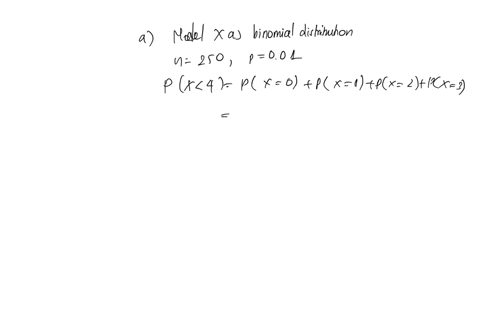 a) Model X as binomial distribution
n = 250, p = 0.01
P(X<4) = P(X=0) + P(X=1) + P(X=2) + P(X=3)
=